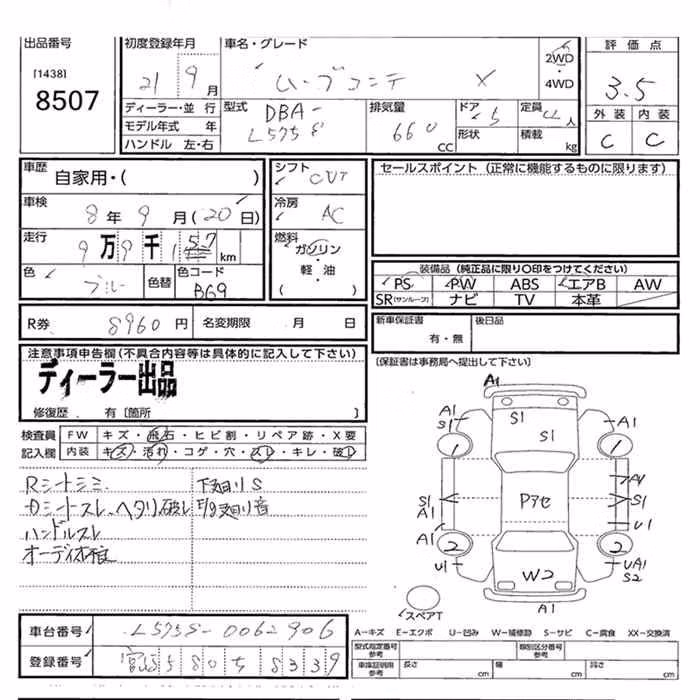 出品番号
[1438]
8507
初度登録年月
21 9月
ディーラー・並 行
モデル年式 年
ハンドル 左・右
車名・グレード
ムーブコンテ X
2WD
・
4WD
型式
DBA-
L575S
排気量
660
CC
ドア
5
形状
定員
4人
積載
kg
評価点
3.5
外装 内装
C C
車歴
自家用・( )
車検
8年 9月(20日)
走行
9万9千1 57 km
色
ブルー
色替
色コード
B69
シフト
CVT
冷房
AC
燃料
ガソリン
・
軽・油
( )
セールスポイント (正常に機能するものに限ります)
装備品 (純正品に限り〇印をつけてください)
PS PW ABS エアB AW
SR(サンルーフ) ナビ TV 本革
R券 8960円 名変期限 月 日
新車保証書
有・無
後日品
(保証書は事務局へ提出して下さい)
注意事項申告欄(不具合内容等は具体的に記入して下さい)
ディーラー出品
修復歴. 有 [箇所 ]
検査員
記入欄
FW キズ・飛石・ヒビ割・リペア跡・X要
内装 キズ・汚れ・コゲ・穴・スレ・キレ・破レ
Rシートシミ 下廻りS
Dシートスレ、ヘタリ破レ E/g廻り音
ハンドルスレ
A1
A1
S1
S1
S1
A1
S1
1
1
A1
S1
A1
Pアセ
S1
A1
U1
2
2
U1
W2
UA1
S2
A1
スペアT
車台番号 L575S-0062906
登録番号 宮崎580ち8339
A-キズ E-エクボ U-凹み W-補修跡 S-サビ C-腐食 XX-交換済
型式指定番号
参考
類別区分番号
参考
車庫証明用
参考
長さ cm 幅 cm 高さ cm